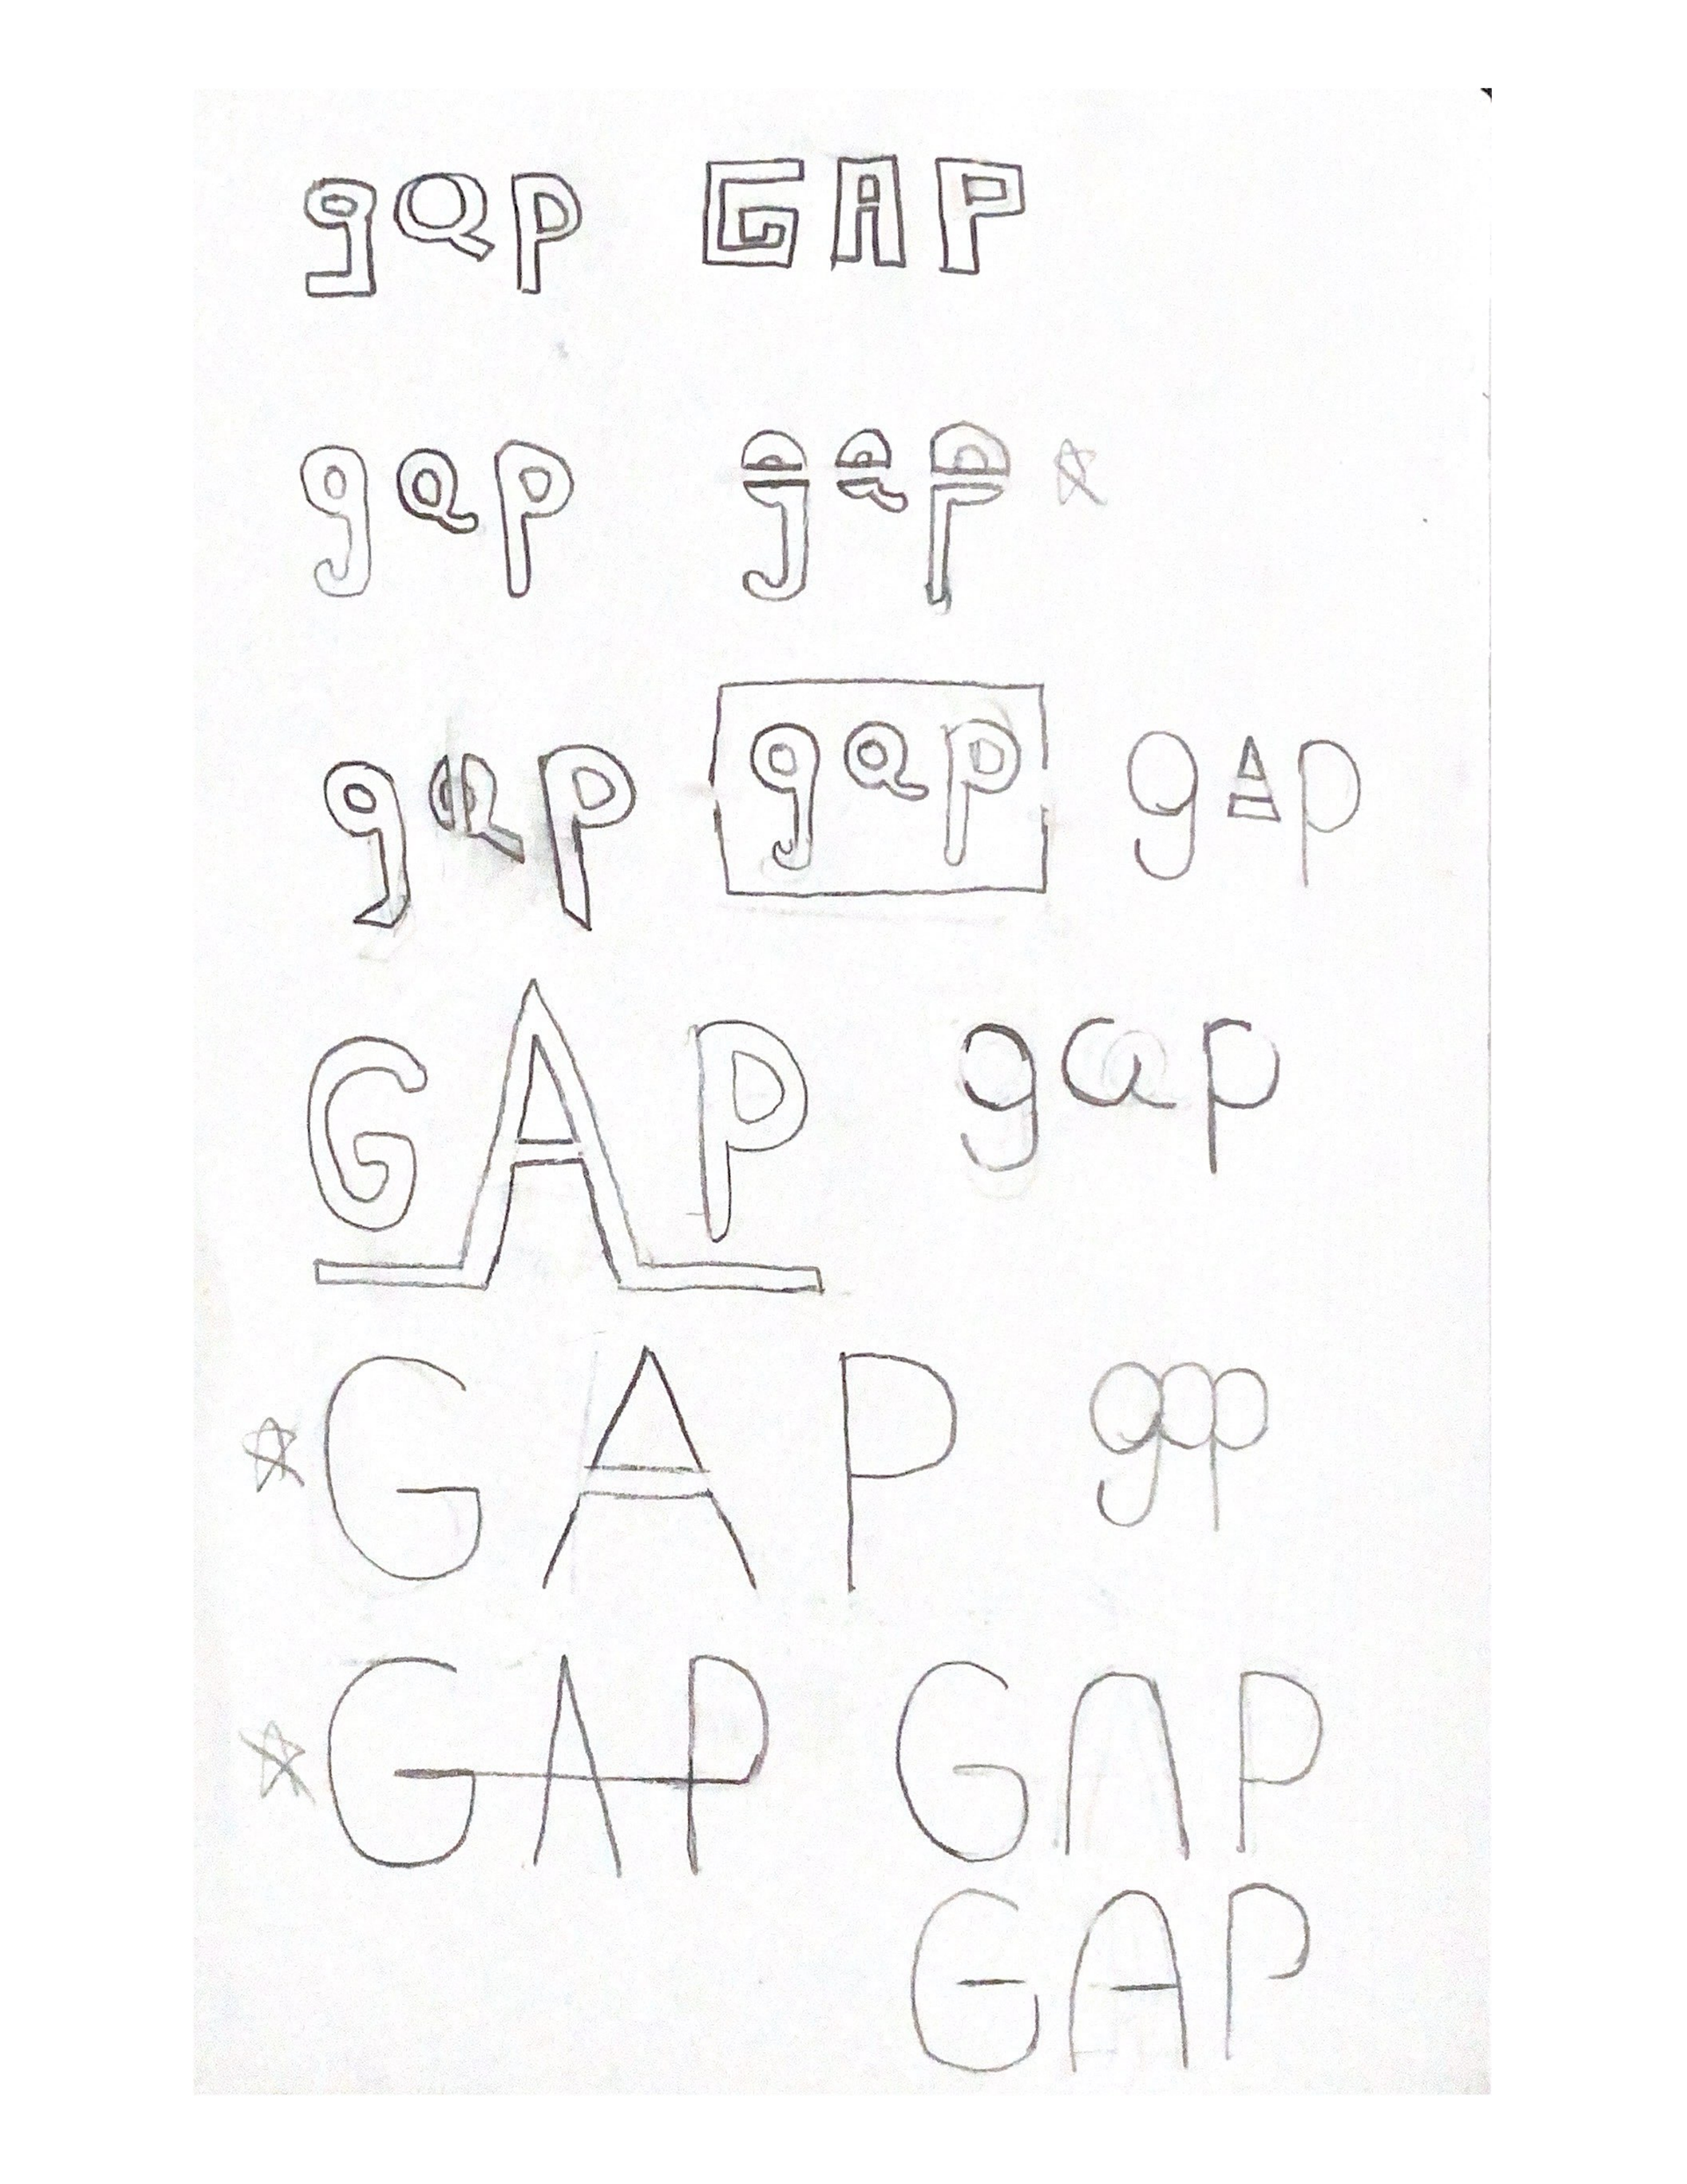 gap GAP
gap gap
gap gap gAp
GAP gap
GAP gap
GAP GAP
GAP